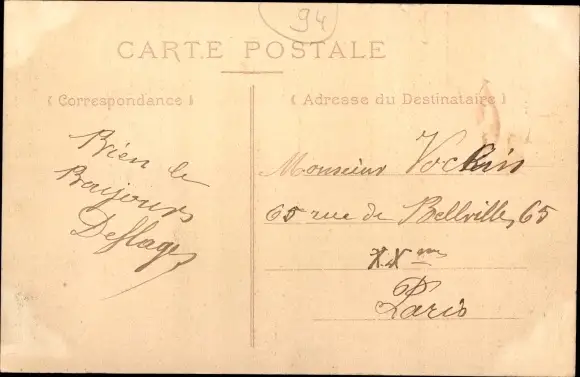 94
CARTE POSTALE
(Correspondance)
(Adresse du Destinataire)
Bien le
Bonjours
Monsieur Vockin
65 rue de Bellville, 65
XXme
Paris